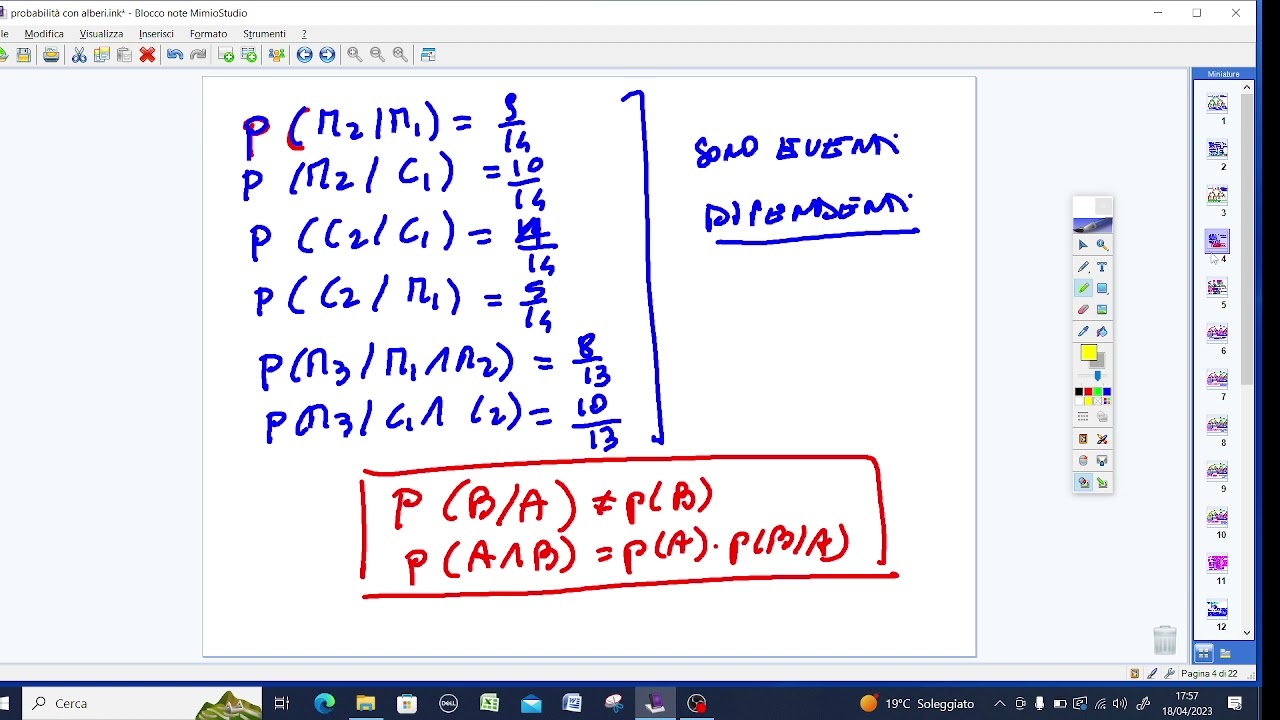 probabilità con alberi.ink* - Blocco note MimioStudio
le Modifica Visualizza Inserisci Formato Strumenti ?
Miniature
P (M2/M1) = 9/14
P (M2/C1) = 10/14
P (C2/C1) = 4/14
P (C2/M1) = 5/14
P(M3/M1∧M2) = 8/13
P(M3/C1∧C2) = 10/13
SONO EVENTI
DIPENDENTI
P (B/A) ≠ p(B)
P (A∧B) = p(A)·p(B/A)
1
2
3
4
5
6
7
8
9
10
11
12
Pagina 4 di 22
Cerca
19°C Soleggiato
17:57
18/04/2023